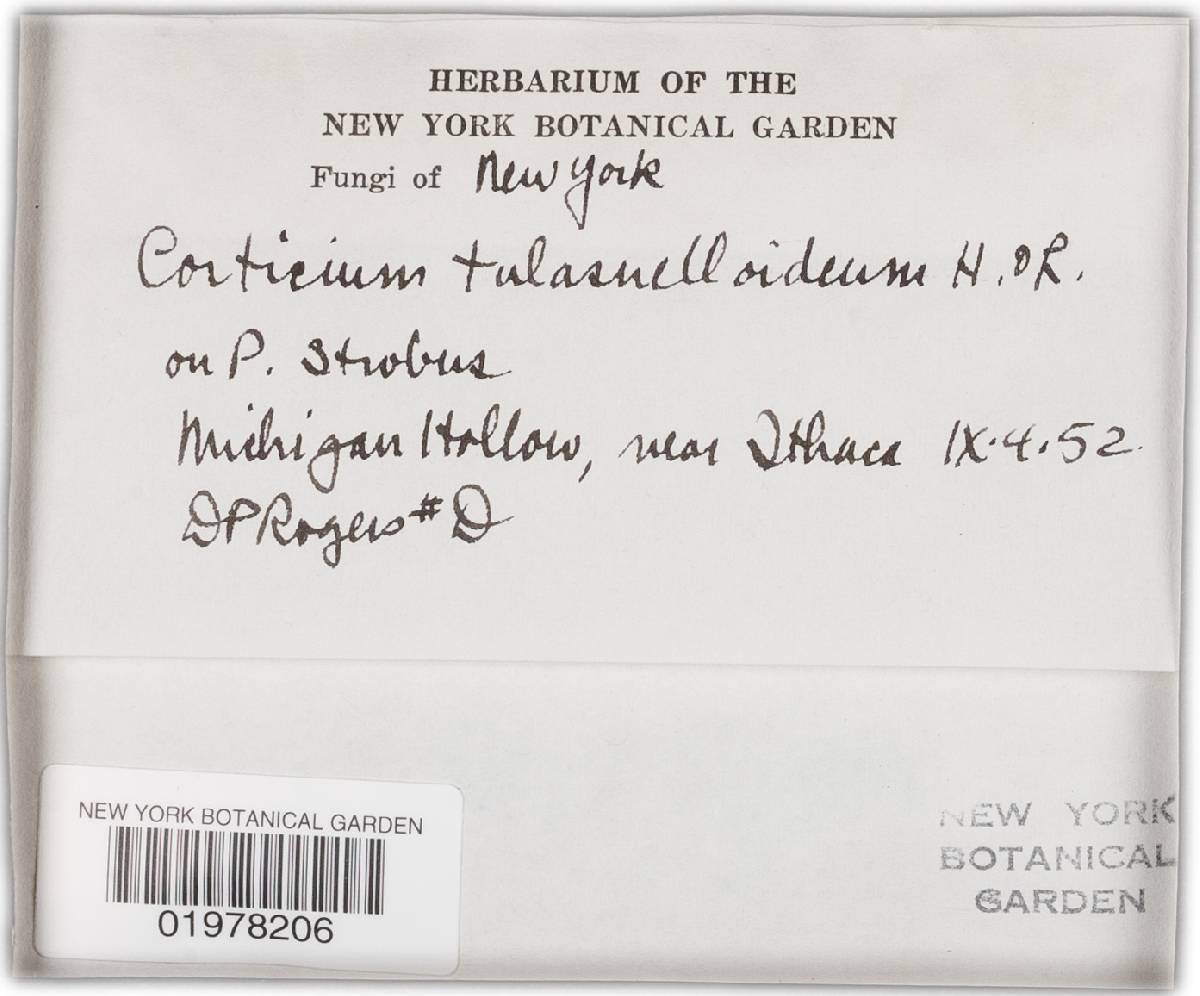 HERBARIUM OF THE
NEW YORK BOTANICAL GARDEN
Fungi of New York
Corticium tulasnelloideum H. & L.
on P. Strobus
Michigan Hollow, near Ithaca IX.4.52
DP Rogers # D
NEW YORK BOTANICAL GARDEN
01978206
NEW YORK
BOTANICAL
GARDEN